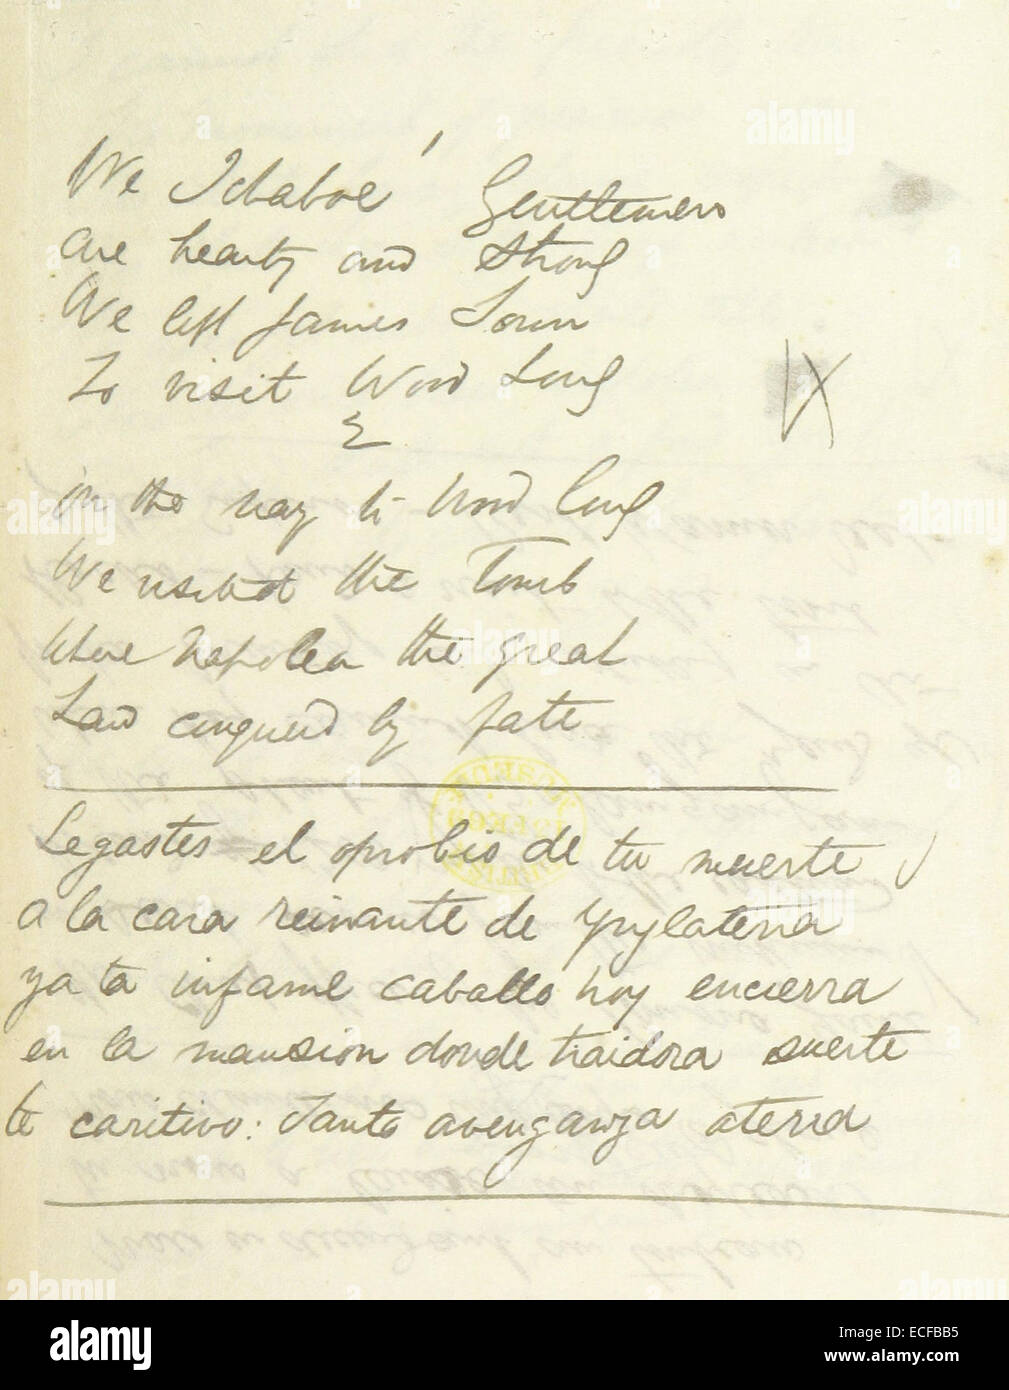 We Ichaboe' Gentlemen
are hearty and Strong
We left James Town
To visit Wood Long
&
on the way to Wood Long
We visited the Tomb
Where Napolen the great
Laid conquerd by fate
IX
Legastes el oprobio de tu muerte
a la cara reinante de Ynglaterra
ya ta infame caballo hoy encierra
en la mansion donde traidora suerte
te caritivo: Tanto avenganza aterra
alamy
Image ID: ECFBB5
www.alamy.com